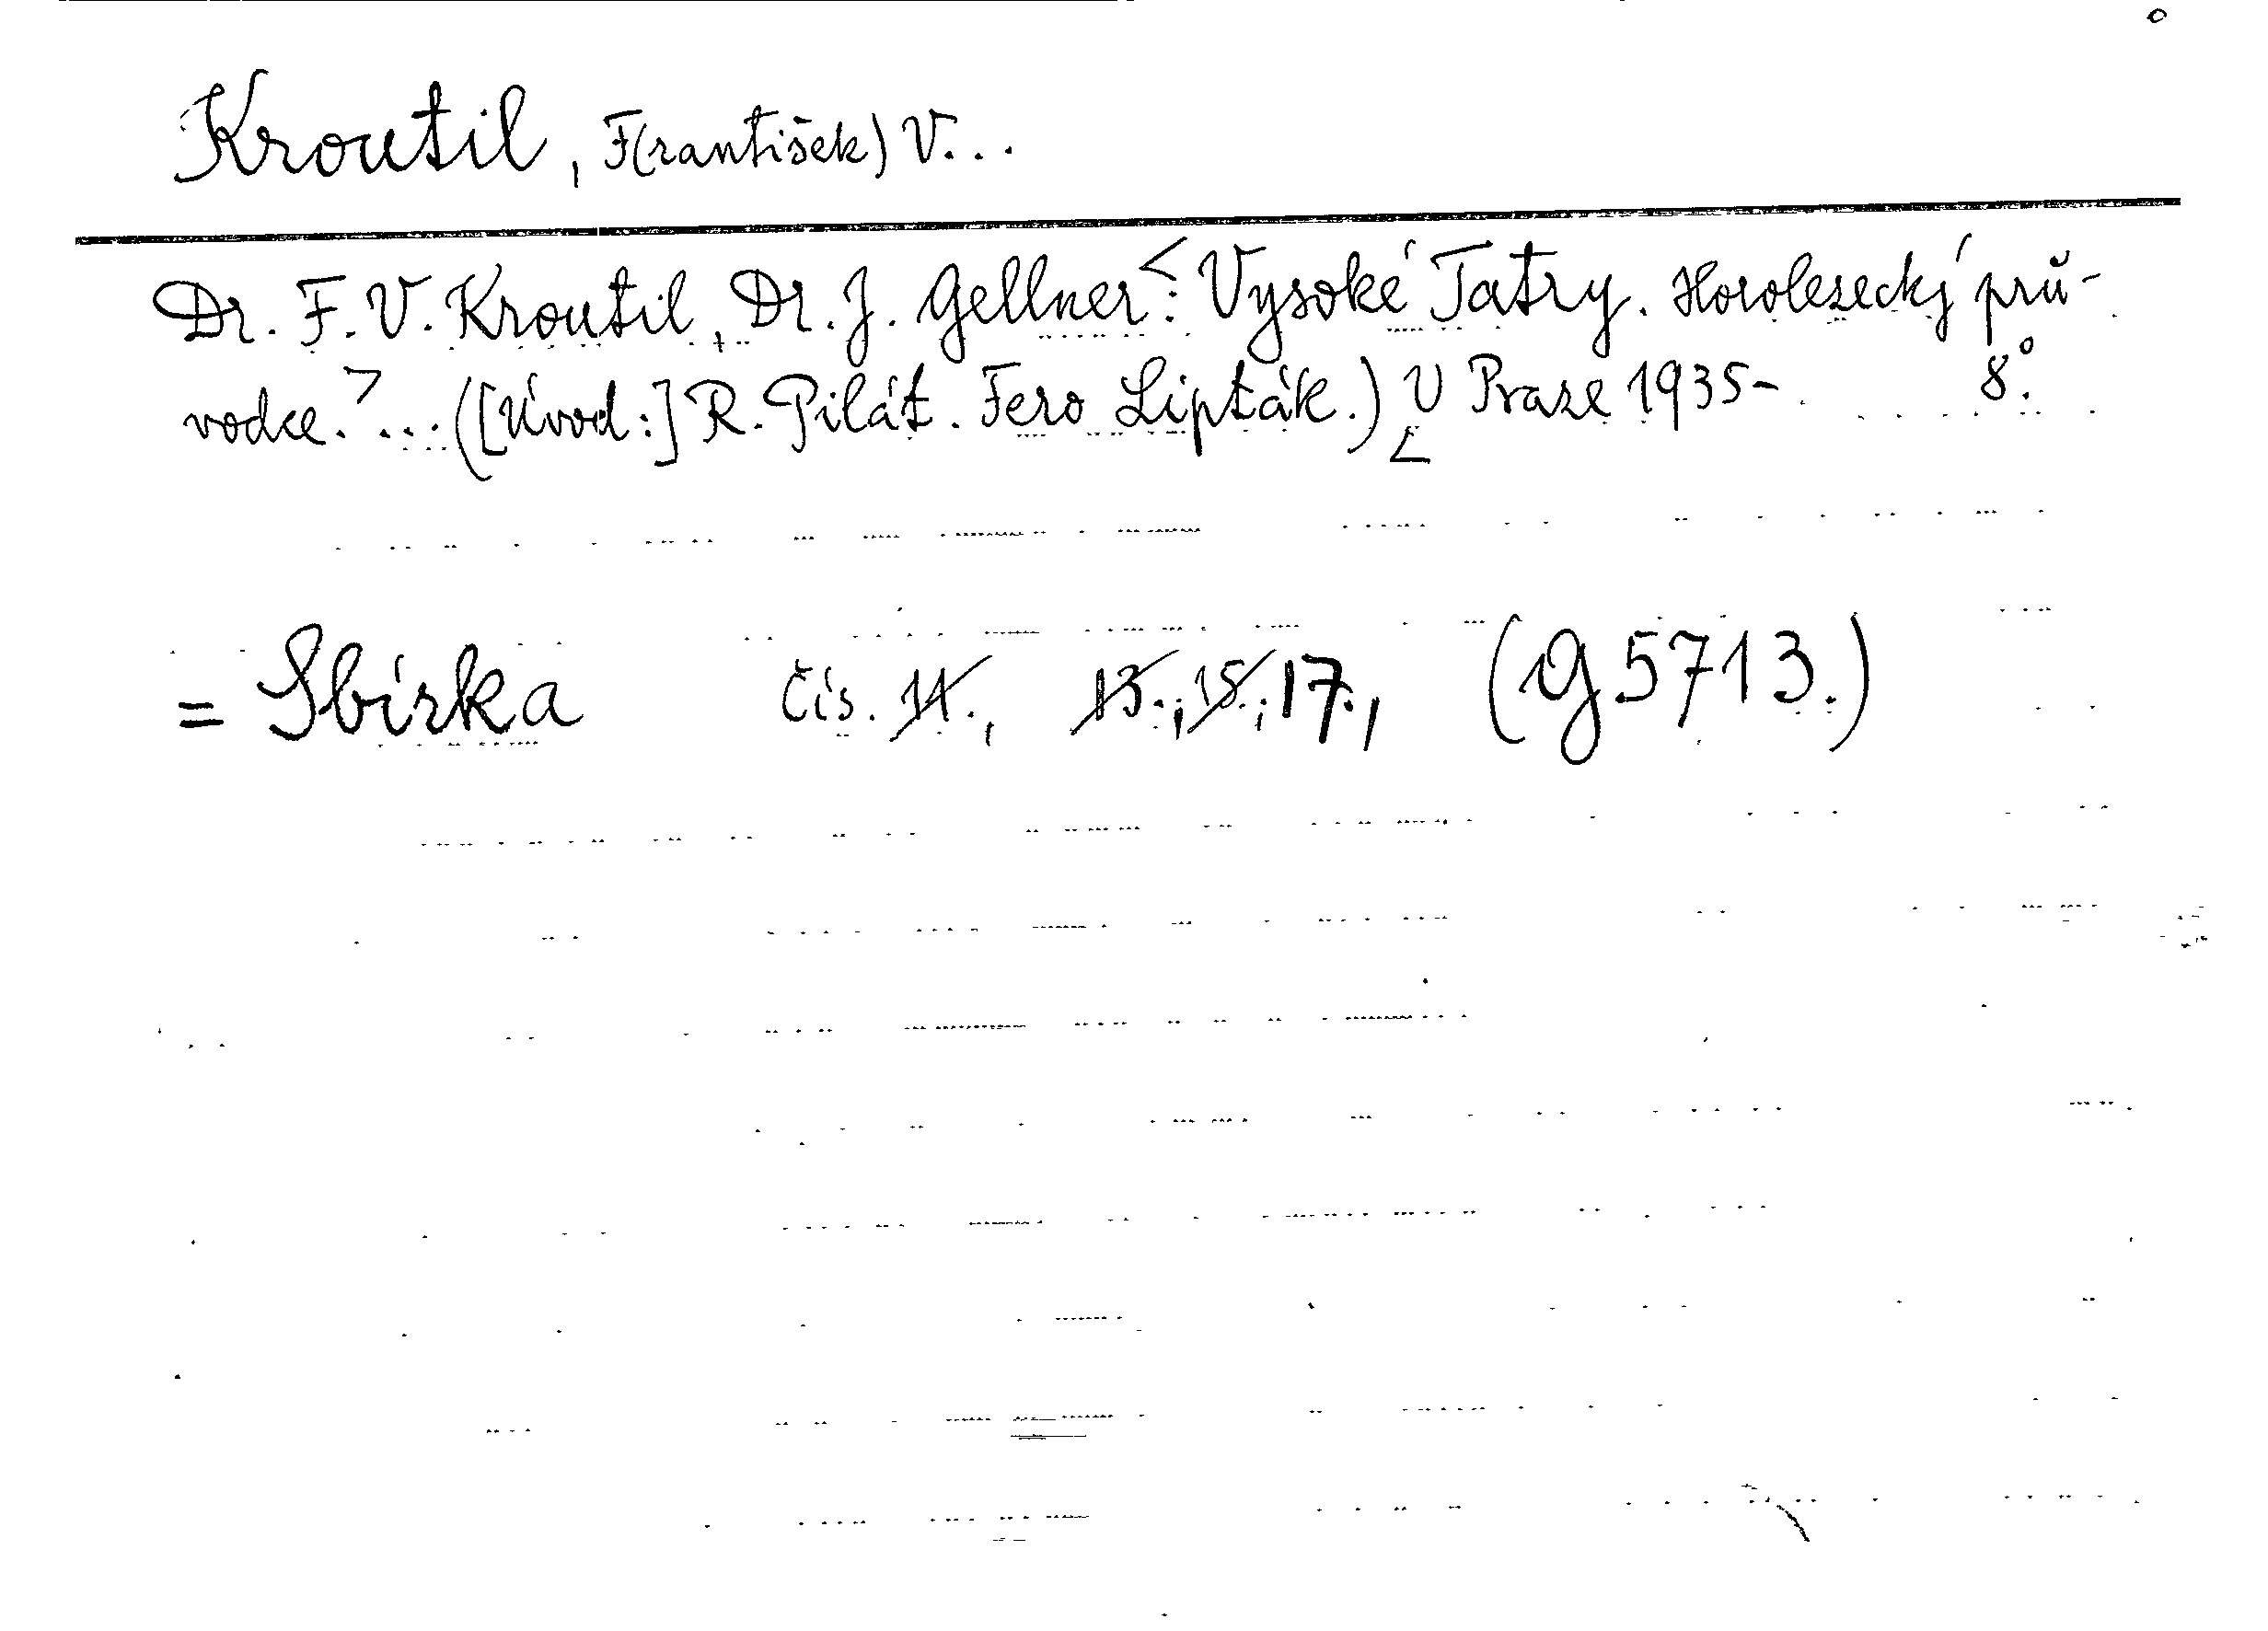 Kroutil, F(rantišek) V...
Dr. F. V. Kroutil, Dr. J. Gellner<: Vysoké Tatry. Horolezecký prů-
vodce.> ... ([Úvod:] R. Pilát. Fero Lipták.) V Praze 1935- 8°.
= Sbírka čís. 11., 13., 15., 17., (G 5713.)